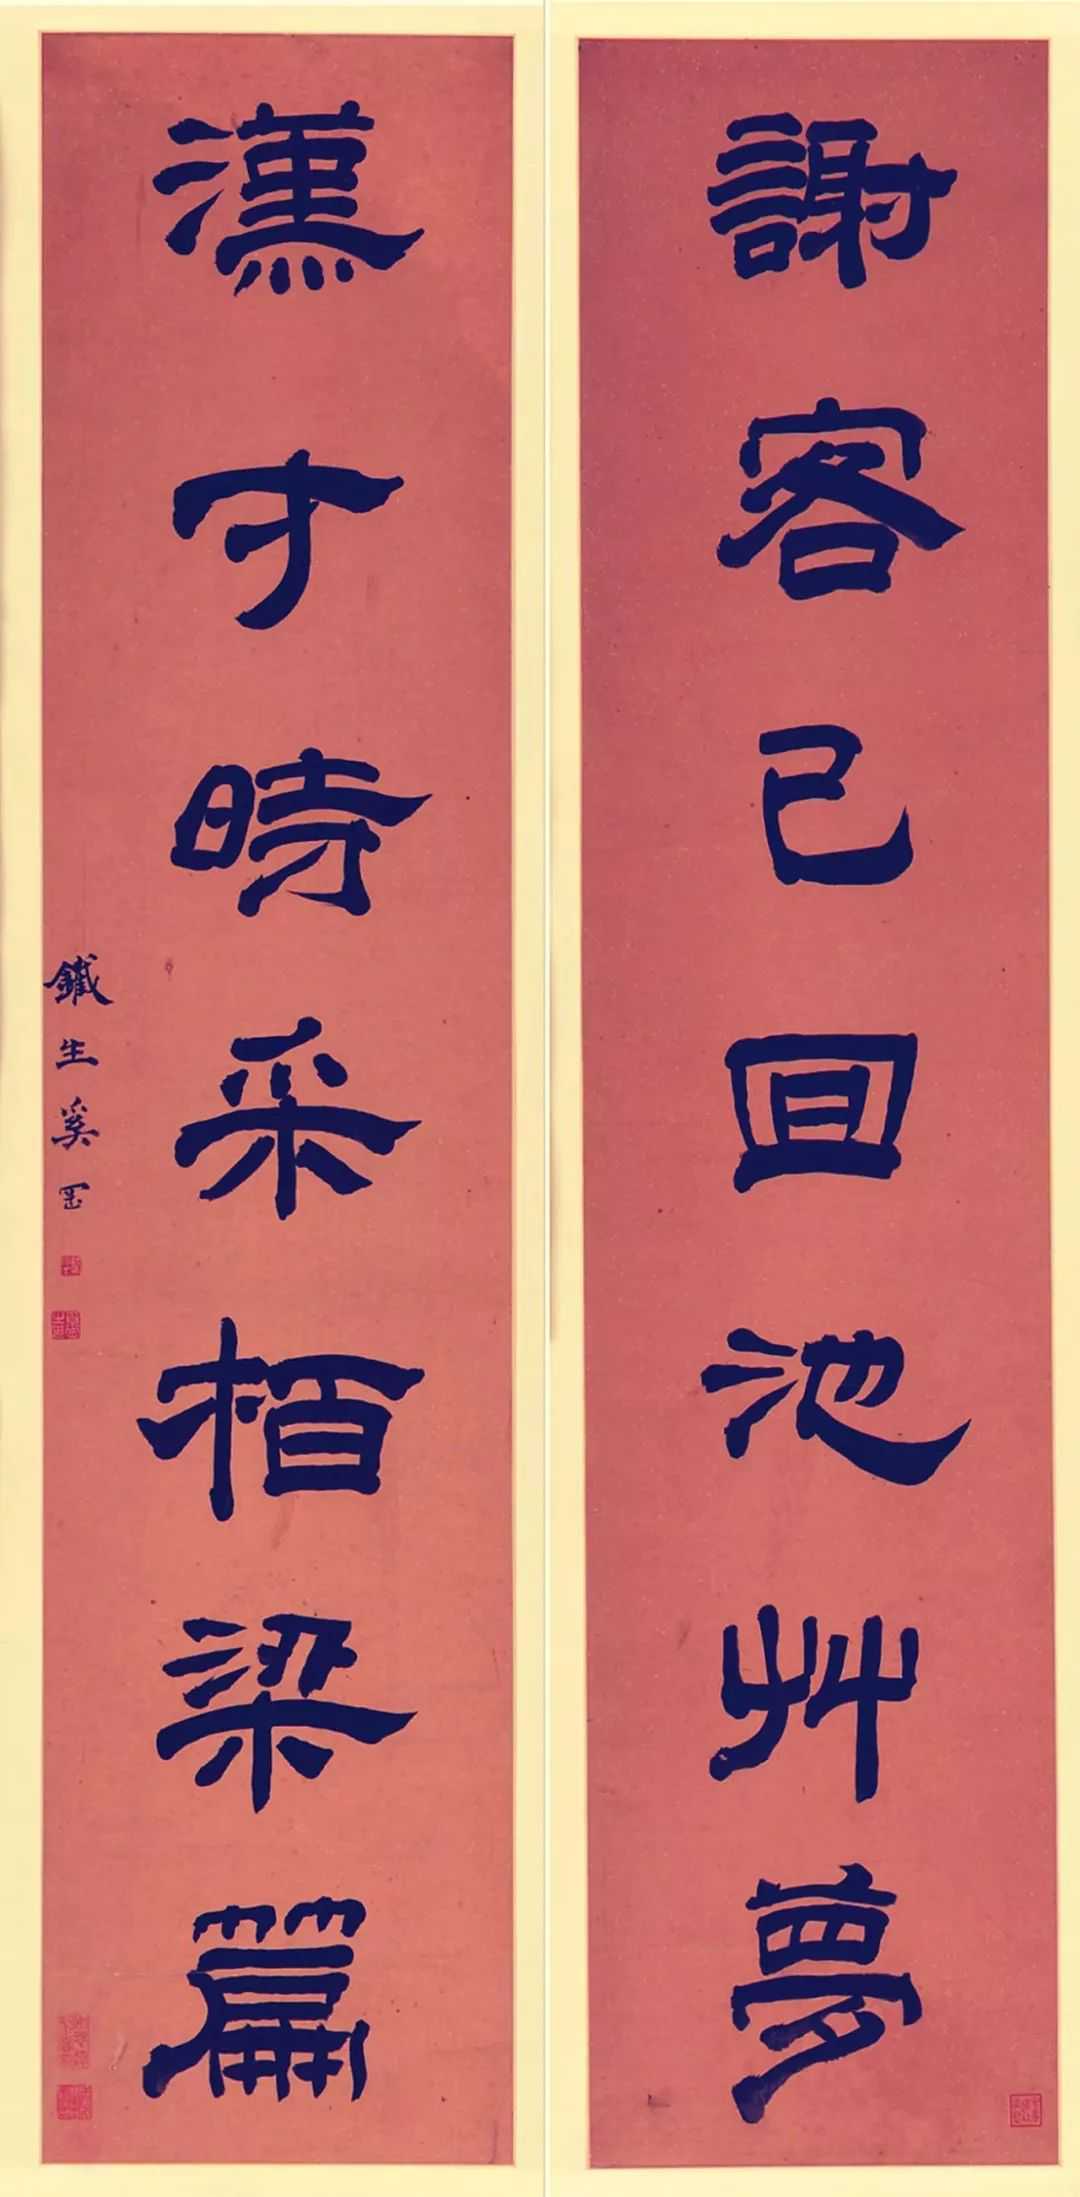 謝客已回池艸夢
漢才時采栢梁篇
鐵生奚冈